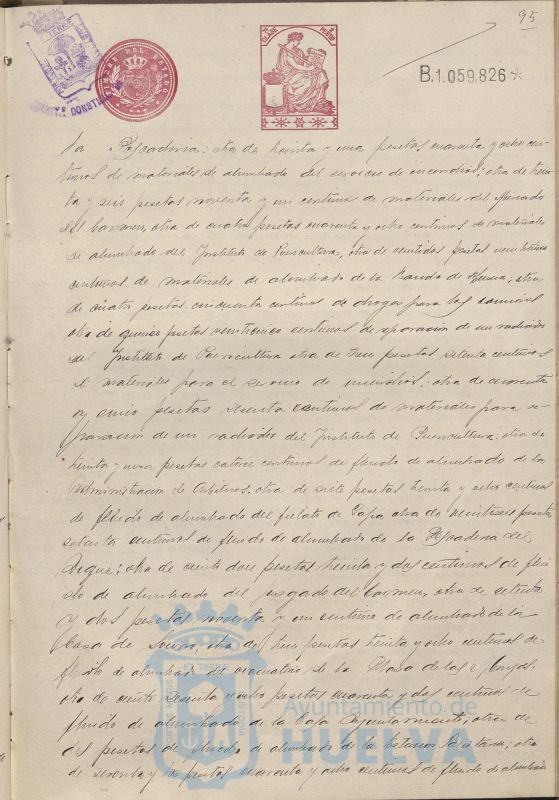 95
TIMBRE DEL ESTADO
7ª CLASE
B.1.059.826*
la Pescaderia: otra de treinta y una pesetas cuarenta y ocho cen-
timos de materiales de alumbrado del servicio de incendios; otra de trein-
ta y seis pesetas noventa y un centimo de materiales del Mercado
del Carmen, otra de cuatro pesetas cuarenta y ocho centimos de materiales
de alumbrado del Instituto de Puericultura, otra de veintidos pesetas veintinueve
centimos de materiales de alumbrado de la Banda de Musica; otra
de cuatro pesetas cincuenta centimos de drogas para las
otra de quince pesetas veinticinco centimos de reparacion de un radiador
del Instituto de Puericultura otra de trece pesetas setenta centimos
de materiales para el servicio de incendios; otra de cuarenta
y cinco pesetas sesenta centimos de materiales para re-
paracion de un radiador del Instituto de Puericultura: otra de
treinta y una pesetas catorce centimos de fluido de alumbrado de la
Administracion de Arbitrios, otra de siete pesetas treinta y ocho centimos
de fluido de alumbrado del fielato de otra de veintiseis pesetas
setenta centimos de fluido de alumbrado de la Pescaderia del
otra de ciento doce pesetas treinta y dos centimos de flui-
do de alumbrado del juzgado del Carmen, otra de setenta
y dos pesetas noventa y un centimo de alumbrado de la
Casa de Socorro, otra de tres pesetas treinta y ocho centimos de
fluido de alumbrado del evacuatorio de la Plaza de las Monjas,
otra de ciento sesenta y ocho pesetas cuarenta y dos centimos de
fluido de alumbrado de la Casa Ayuntamiento, otra de
pesetas de fluido de alumbrado de la Estacion Sanitaria; otra
de sesenta y pesetas cuarenta y ocho centimos de fluido de alumbrado
Ayuntamiento de
HUELVA